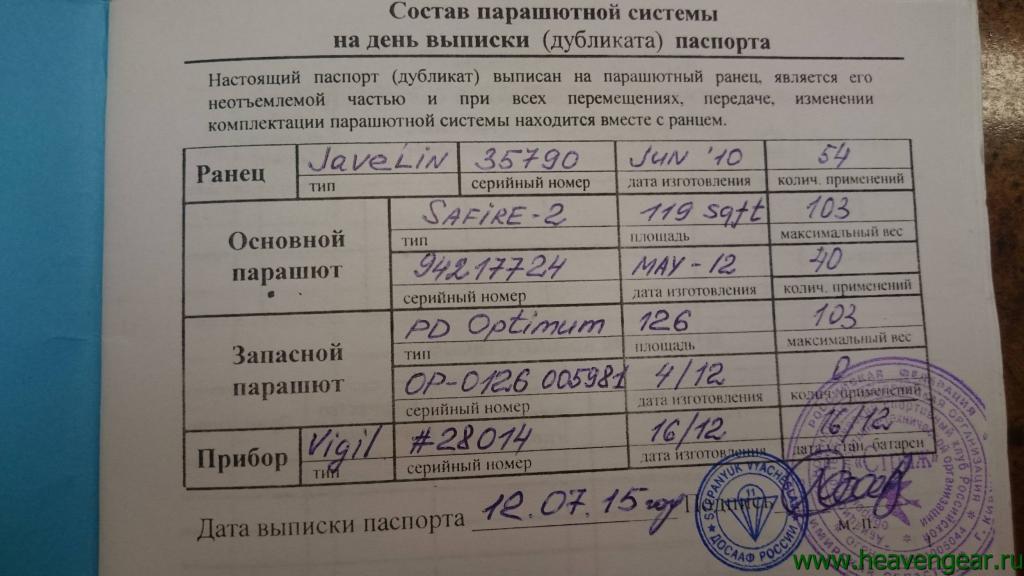 Состав парашютной системы
на день выписки (дубликата) паспорта
Настоящий паспорт (дубликат) выписан на парашютный ранец, является его
неотъемлемой частью и при всех перемещениях, передаче, изменении
комплектации парашютной системы находится вместе с ранцем.
Ранец JaveLin 35790 Jun '10 54
тип серийный номер дата изготовления колич. применений
Основной парашют
SAFIRE-2 119 sqft 103
тип площадь максимальный вес
94217724 MAY-12 40
серийный номер дата изготовления колич. применений
Запасной парашют
PD Optimum 126 103
тип площадь максимальный вес
OP-0126 005981 4/12 0
серийный номер дата изготовления колич. применений
Прибор Vigil #28014 16/12 16/12
тип серийный номер дата изготовления батареи
Дата выписки паспорта 12.07.15 год Подпись
М. П.
STEPANYUK VYACHESLAV
ДОСААФ РОССИИ
www.heavengear.ru